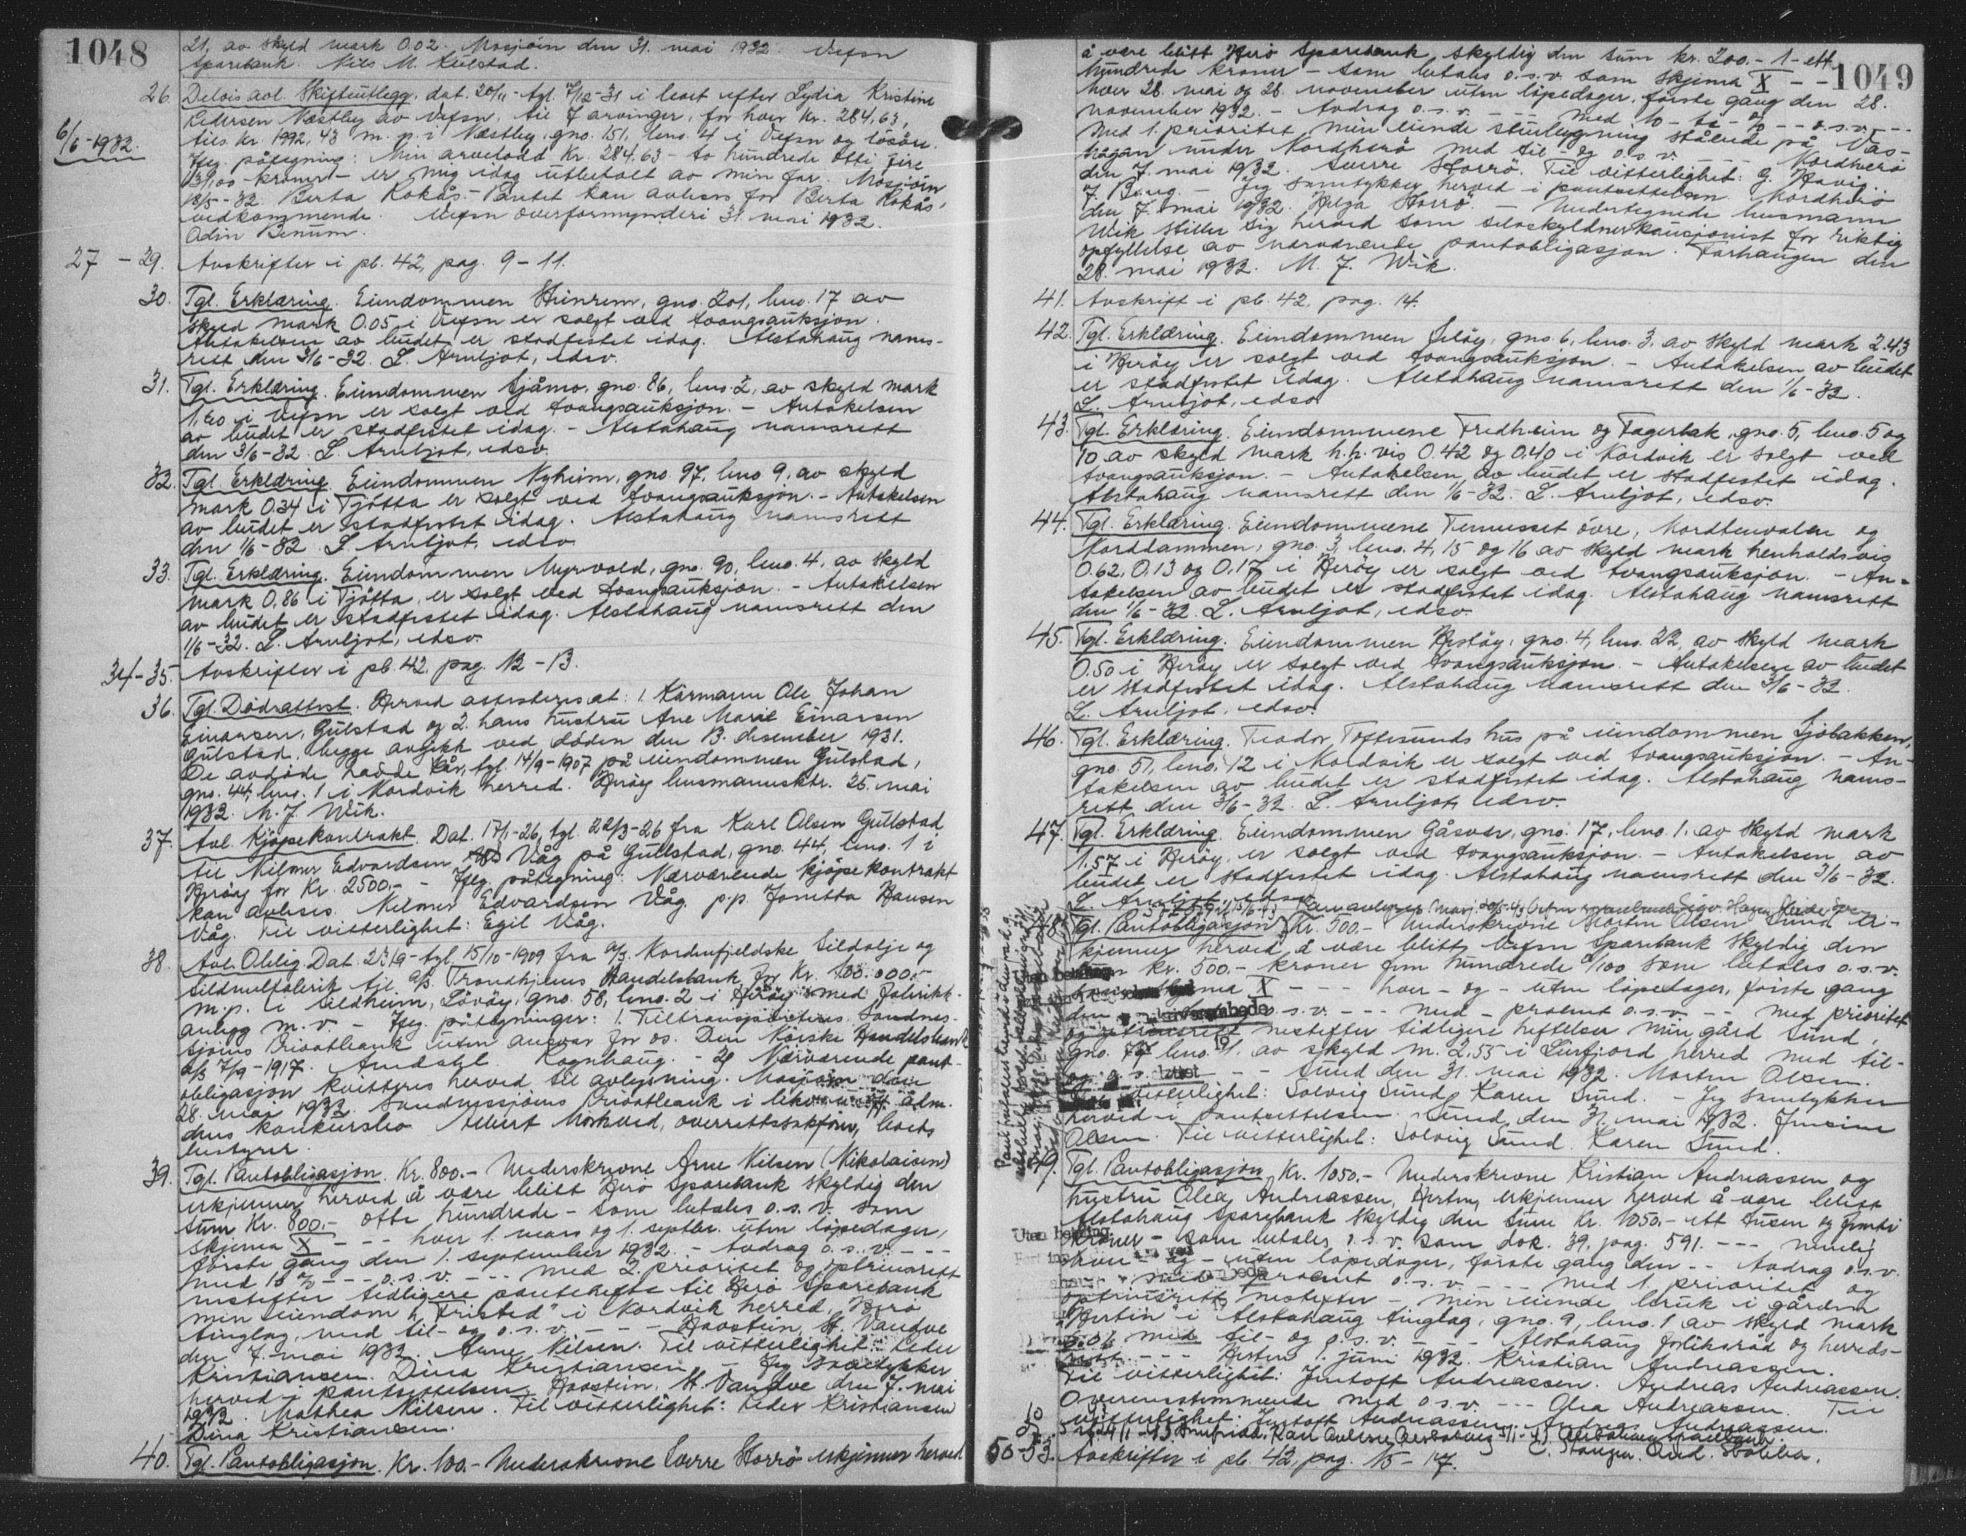 1048
21, av skyld mark 0.02. Mosjøen den 31. mai 1932. Vefsn
Sparebank. Nils M. Kulstad.
26. Delvis avl. Skifteutlegg, dat. 20/11- tgl. 7/12-31 i boet efter Lydia Kristine
6/6-1932.
Petersen Næstby av Vefsn, til 7 arvinger, for hver kr. 284,63,
tils kr. 1992,43 m. p. i Næstby, gno. 151, bno. 4 i Vefsn og løsøre.
Iføg. påtegning: Min arvelodd kr. 284.63 - to hundrede otti fire
kroner - er mig idag utbetalt av min far. Mosjøen
18/5-32. Berta Kokås. - Pantet kan avlyses for Berta Kokås'
vedkommende. Vefsn overformynderi 31. mai 1932.
Odin Benum.
27 - 29. Avskrifter i pb. 42, pag. 9 - 11.
30. Tgl. Erklæring. Eiendommen Stenrem, gno. 201, bno. 17 av
skyld mark 0.05 i Vefsn er solgt ved tvangsauksjon.
Antakelsen av budet er stadfestet idag. Alstahaug nams-
rett den 3/6-32. L. Arnljot, edsv.
31. Tgl. Erklæring. Eiendommen Sjåmo, gno. 86, bno. 2, av skyld mark
1,20 i Vefsn er solgt ved tvangsauksjon. - Antakelsen
av budet er stadfestet idag. - Alstahaug namsrett
den 3/6-32. L. Arnljot, edsv.
32. Tgl. Erklæring. Eiendommen Nyheim, gno. 97, bno 9, av skyld
mark 0.34 i Tjøtta er solgt ved tvangsauksjon. - Antakelsen
av budet er stadfestet idag. Alstahaug namsrett
den 1/6-32. L. Arnljot, edsv.
33. Tgl. Erklæring. Eiendommen Myrvold, gno. 90, bno. 4, av skyld
mark 0.86 i Tjøtta, er solgt ved tvangsauksjon. - Antakelsen
av budet er stadfestet idag. Alstahaug namsrett den
1/6-32. L. Arnljot, edsv.
34-35. Avskrifter i pb. 42, pag. 12 - 13.
36. Tgl. Dødsattest. Herved attesteres at: 1. Kårmann Ole Johan
Einarsen, Gulstad og 2. hans hustru Ane Marie Einarsen
Gulstad, begge avgikk ved døden den 13. desember 1931.
De avdøde hadde kår, tgl. 14/9-1907 på eiendommen Gulstad,
gno. 44, bno. 1 i Nordvik herred. Herøy lensmannsktr. 25. mai
1932. M. J. Wik.
37. Avl. Kjøpekontrakt. Dat. 17/1-26, tgl. 22/3-26 fra Karl Olsen Gullstad
til Hilmer Edvardsen Våg på Gullstad, gno. 44, bno. 1 i
Herøy for kr. 2500,- - Iføg. påtegning: Nærværende kjøpekontrakt
kan avlyses. Hilmer Edvardsen Våg. p.p. Jonetta Hansen
Våg. Til vitterlighet: Egil Våg.
38. Avl. Oblig. Dat. 23/9 - tgl. 15/10-1909 fra A/S Nordenfjeldske Sildolje og
Sildmelfabrik til A/S Trondhjems Handelsbank for kr. 100.000.-
m.p. i Sildheim, Løvøy, gno. 58, bno. 2 i Herøy med fabrikk-
anlegg m. v. - Iføg. påtegninger: 1. Tiltransporteres Sandnes-
sjøens Privatbank uten ansvar for os. Den Norske Handelsbank
A/S 7/9-1917. Amdahl. Kognhaug. - 2) Nærværende pant-
obligasjon kvitteres herved til avlysning. Mosjøen den
28. mai 1932. Sandnessjøens Privatbank i likv. u. off. adm.
dens konkursbo. Albert Morkved, overrettssakfører, boets
bestyrer.
39. Tgl. Pantobligasjon. Kr. 800.- Underskrevne Arne Nilsen (Nikolaisen)
erkjenner herved å være blitt Herø Sparebank skyldig den
sum kr. 800.- otte hundrede - som betales o. s. v. som
skjema X - - - hver 1. mars og 1. septbr. uten løpedager,
første gang den 1. september 1932. - Avdrag o. s. v. - - -
med 10 % - - - o. s. v. - - - med 2. prioritet og oprinsrett
nestefter tidligere panteheftelse til Herø Sparebank
min eiendom „Fristed" i Nordvik herred, Herø
tinglag, med til- og o. s. v. - - - Haastein, St. Vandve
den 7. mai 1932. Arne Nilsen. Til vitterlighet: Peder
Kristiansen. Dina Kristiansen. - Jeg samtykker
herved i pantsettelsen. Haastein, St. Vandve den 7. mai
1932. Mathea Nilsen. Til vitterlighet: Peder Kristiansen
Dina Kristiansen.
40. Tgl. Pantobligasjon. Kr. 100.- Underskrevne Sverre Storrø erkjenner herved
1049
å være blitt Herø Sparebank skyldig den sum kr. 200.- 1 - ett
hundrede kroner - som betales o.s.v. som skjema X - -
hver 28. mai og 28. november uten løpedager, første gang den 28.
november 1932. - Avdrag o. s. v. - - - med 10 - ti - % - - o.s.v. - - -
med 1. prioritet min eiende stuebygning stående på Vås-
hagan under Nordherø med til- og o. s. v. - - - Nordherø
den 7. mai 1932. Sverre Storrø. Til vitterlighet: G. Havig.
J. Berg. - Jeg samtykker herved i pantsettelsen. Nordherø
den 7. mai 1932. Helga Storrø - Undertegnede lensmann
Wik stiller sig herved som selvskyldnerkausjonist for riktig
opfyllelse av nærværende pantobligasjon. Farhaugen den
28. mai 1932. M. J. Wik.
41. Avskrift i pb. 42, pag. 14.
42. Tgl. Erklæring. Eiendommen Indøy, gno. 6, bno. 3, av skyld mark 2.43
i Herøy er solgt ved tvangsauksjon. - Antakelsen av budet
er stadfestet idag. Alstahaug namsrett den 1/6-32.
L. Arnljot, edsv.
43. Tgl. Erklæring. Eiendommene Fredheim og Fagerbak, gno. 5, bno. 5 og
10 av skyld mark h.h.vis 0.42 og 0.40 i Nordvik er solgt ved
tvangsauksjon. - Antakelsen av budet er stadfestet idag.
Alstahaug namsrett den 1/6-32. L. Arnljot, edsv.
44. Tgl. Erklæring. Eiendommene Tenneset øvre, Nordtenvalen og
Norddammen, gno. 3, bno. 4, 15 og 16 av skyld mark henholdsvis
0.62, 0.13 og 0.17 i Herøy er solgt ved tvangsauksjon. - An-
takelsen av budet er stadfestet idag. Alstahaug namsrett
den 1/6-32. L. Arnljot, edsv.
45. Tgl. Erklæring. Eiendommen Hestøy, gno. 4, bno. 22, av skyld mark
0.50 i Herøy er solgt ved tvangsauksjon. - Antakelsen av budet
er stadfestet idag. Alstahaug namsrett den 3/6-32.
L. Arnljot, edsv.
46. Tgl. Erklæring. Teodor Toftesunds hus på eiendommen Sjøbakken,
gno. 51, bno. 12 i Nordvik er solgt ved tvangsauksjon. - An-
takelsen av budet er stadfestet idag. Alstahaug nams-
rett den 3/6-32. L. Arnljot, edsv.
47. Tgl. Erklæring. Eiendommen Gåsvær, gno. 17, bno. 1, av skyld mark
1.57 i Herøy, er solgt ved tvangsauksjon. - Antakelsen av
budet er stadfestet idag. Alstahaug namsrett den 3/6-32.
L. Arnljot, edsv.
48. Tgl. Pantobligasjon. Kr. 500.- Underskrevne Morten Olsen Sund er-
kjenner herved å være blitt Vefsn Sparebank skyldig den
sum kr. 500.- kroner fem hundrede 00/100 som betales o. s. v.
skjema X - - - hver - og - uten løpedager, første gang
den o. s. v. - - - med - procent o. s. v. - - med prioritet
og oprinsrett nestefter tidligere heftelser min gård Sund,
gno. 17 bno. 1. av skyld m. 2,55 i Leirfjord herred med til-
og o. s. v. - - - Sund den 31. mai 1932. Morten Olsen.
Til vitterlighet: Solveig Sund. Karen Sund. - Jeg samtykker
herved i pantsettelsen. Sund, den 31. mai 1932. Jensine
Olsen. Til vitterlighet: Solveig Sund. Karen Sund.
49. Tgl. Pantobligasjon. Kr. 1050.- Underskrevne Kristian Andreassen og
hustru Olea Andreassen, Hestn, erkjenner herved å være blitt
Alstahaug Sparebank skyldig den sum kr. 1050.- ett tusen og femti
kroner - som betales o. s. v. som dok. 39, pag. 591. - - - nemlig
hver - og - uten løpedager, første gang den - - Avdrag o.s.v.
- - - med procent o. s. v. - - - med 1 prioritet og
oprinsrett nestefter - min eiende bruk i gården
„Hestn" i Alstahaug tinglag, gno. 9, bno. 1 av skyld mark
med til- og o. s. v. - - - Alstahaug forliksråd og herreds-
rett. - - - Hestn 1. juni 1932. Kristian Andreassen.
Til vitterlighet: Jentoft Andreassen. Andreas Andreassen.
Overensstemmende med o s. v. - - - Olea Andreassen. Til
vitterlighet: Jentoft Andreassen. Andreas Andreassen.
50-53. Avskrifter i pb. 42, pag. 15 - 17.